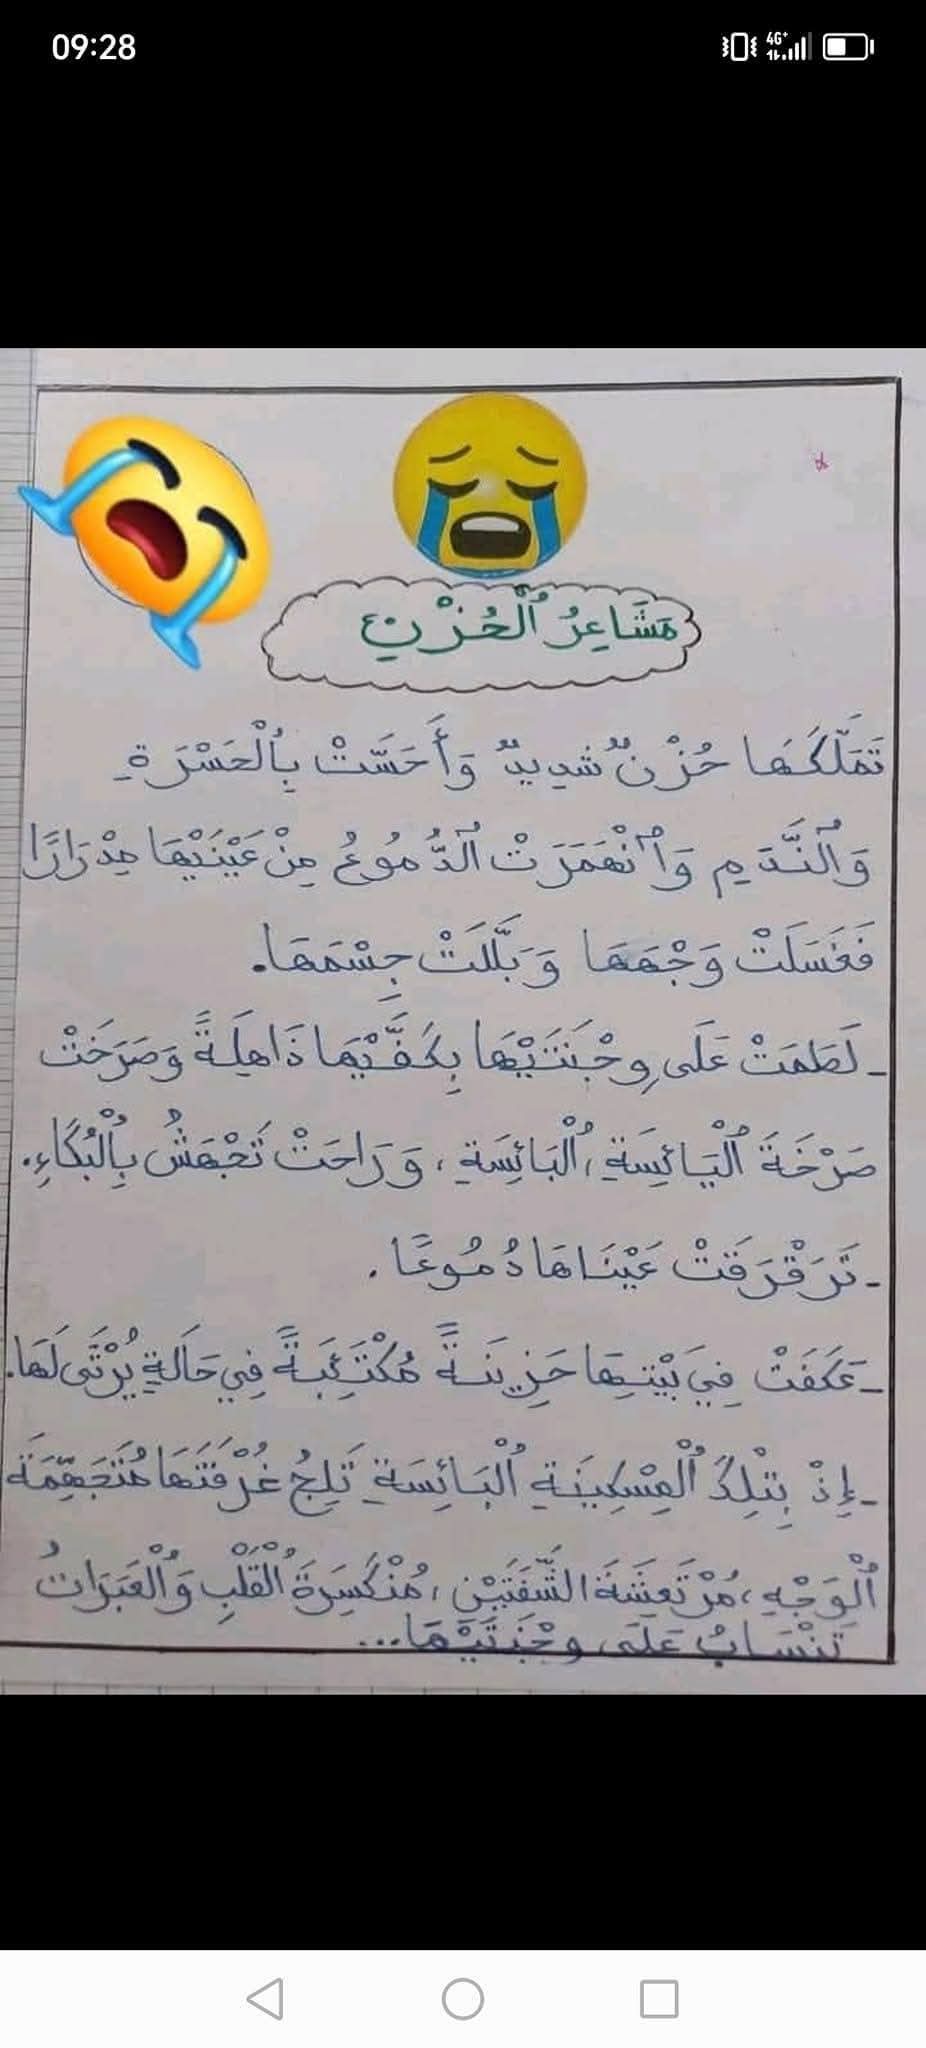 09:28
4G+
مَشَاعِرُ ٱلْحُزْنِ
تَمَلَّكَهَا حُزْنٌ شَدِيدٌ وَأَحَسَّتْ بِٱلْحَسْرَةِ
وَٱلنَّدَمِ وَٱنْهَمَرَتْ ٱلدُّمُوعُ مِنْ عَيْنَيْهَا مِدْرَارًا
فَغَسَلَتْ وَجْهَهَا وَبَلَّلَتْ جِسْمَهَا.
ـ لَطَمَتْ عَلَى وِجْنَتَيْهَا بِكَفَّيْهَا ذَاهِلَةً وَصَرَخَتْ
صَرْخَةَ ٱلْيَائِسَةِ، ٱلْبَائِسَةِ، وَرَاحَتْ تَجْهَشُ بِٱلْبُكَاءِ.
ـ تَرَقْرَقَتْ عَيْنَاهَا دُمُوعًا.
ـ عَكَفَتْ فِي بَيْتِهَا حَزِينَةً مُكْتَئِبَةً فِي حَالَةٍ يُرْثَى لَهَا.
ـ إِذْ بِتِلْكَ ٱلْمِسْكِينَةِ ٱلْبَائِسَةِ تَلِجُ غُرْفَتَهَا مُتَجَهِّمَةَ
ٱلْوَجْهِ، مُرْتَعِشَةَ الشَّفَتَيْنِ، مُنْكَسِرَةَ ٱلْقَلْبِ وَٱلْعَبَرَاتُ
تَنْسَابُ عَلَى وِجْنَتَيْهَا...